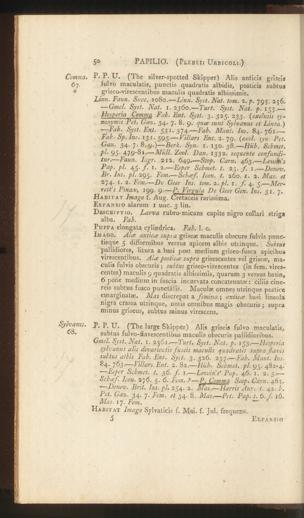 50 PAPILIO. (Plebeii Urbicoli.)
Comma. P. P. U. (The silver-spotted Skipper) Alis anticis griseis
67. fulvo maculatis, punctis quadratis albidis, posticis subtus
griseo-virescentibus maculis quadratis albissimis.
Linn. Faun. Suec. 1080.—Linn. Syst. Nat. tom. 2. p. 793. 256.
—Gmel. Syst. Nat. 1. 2360.—Turt. Syst. Nat. p. 153.—
Hesperia Comma Fab. Ent. Syst. 3. 325. 233. (exclusis sy-
nonymis Pet. Gaz. 34. 7. 8. 9. quæ sunt Sylvanus et Linea.)
—Fab. Syst. Ent. 531. 374.—Fab. Mant. Ins. 84. 761.—
Fab. Sp. Ins. 131. 595.—Villars Ent. 2. 79. (excl. sy. Pet.
Gaz. 34. 7. 8. 9.)—Berk. Syn. 1. 130. 38.—Hüb. Schmet.
pl. 95. 479-81.—Müll. Zool. Dan. 1332. sequente confundi-
tur.—Faun. Ligr. 212. 649.—Step. Carn. 463.—Lewin's
Pap. pl. 45. f. 1. 2.—Esper Schmet. 1. 23. f. 1.—Donov.
Br. Ins. pl. 295. Fem.—Schæf. Icon. t. 260. 1. 2. Mas. et
274. 1. 2. Fem.—De Geer Ins. tom. 2. pl. 2. f. 4. 5.—Mer-
ret's Pinax, 199. 9.—P. Virgula De Geer Gen. Ins. 31. 7.
Habitat Imago f. Aug. Cretaceis rarissima.
Expansio alarum 1 unc. 3 lin.
Descriptio. Larva rubro-micans capite nigro collari striga
alba. Fab.
Puppa elongata cylindrica. Fab. l. c.
Imago. Alæ anticæ supra griseæ maculis obscure fulvis pone-
tisque 5 difformibus versus apicem albis utrinque. Subtus
pallidiores, litura a basi pone medium griseo-fusca apicibus
virescentibus. Alæ posticæ supra griseescentes vel griseæ, ma-
culis fulvis obscuris; subtus griseo-virescentes (in fem. vires-
centes) maculis 9 quadratis albissimis, quarum 3 versus basin,
6 pone medium in fascia incurvata concatenatæ: ciliis cine-
reis subtus fusco punctatis. Maculæ omnes utrinque postice
emarginatæ. Mas discrepat a femina; anticæ basi lineola
nigra crassa utrinque, notis omnibus magis obscuris; supra
minus griseus, subtus minus virescens.
Sylvanus. P. P. U. (The large Skipper) Alis griseis fulvo maculatis,
68. subtus fulvo-flavescentibus maculis obscuris pallidioribus.
Gmel. Syst. Nat. 1. 2361.—Turt. Syst. Nat. p. 153.—Hesperia
sylvanus alis divaricatis fuscis maculis quadratis supra flavis
subtus albis Fab. Ent. Syst. 3. 326. 237.—Fab. Mant. Ins.
84. 763.—Villars Ent. 2. 82.—Hüb. Schmet. pl. 95. 482-4.
—Esper Schmet. t. 36. f. 1.—Lewin's Pap. 46. 1. 2. 3.—
Schæf. Icon. 276. 5. 6. Fem.?—P. Comma Scop. Carn. 461.
—Donov. Brit. Ins. pl. 254. 2. Mas.—Harris Aur. t. 42. b.
Pet. Gaz. 34. 7. Fem. et 34. 8. Mas.—Pet. Pap. t. 6. f. 16.
Mas. 17. Fem.
Habitat Imago Sylvaticis f. Mai. f. Jul. frequens.
5 Expansio